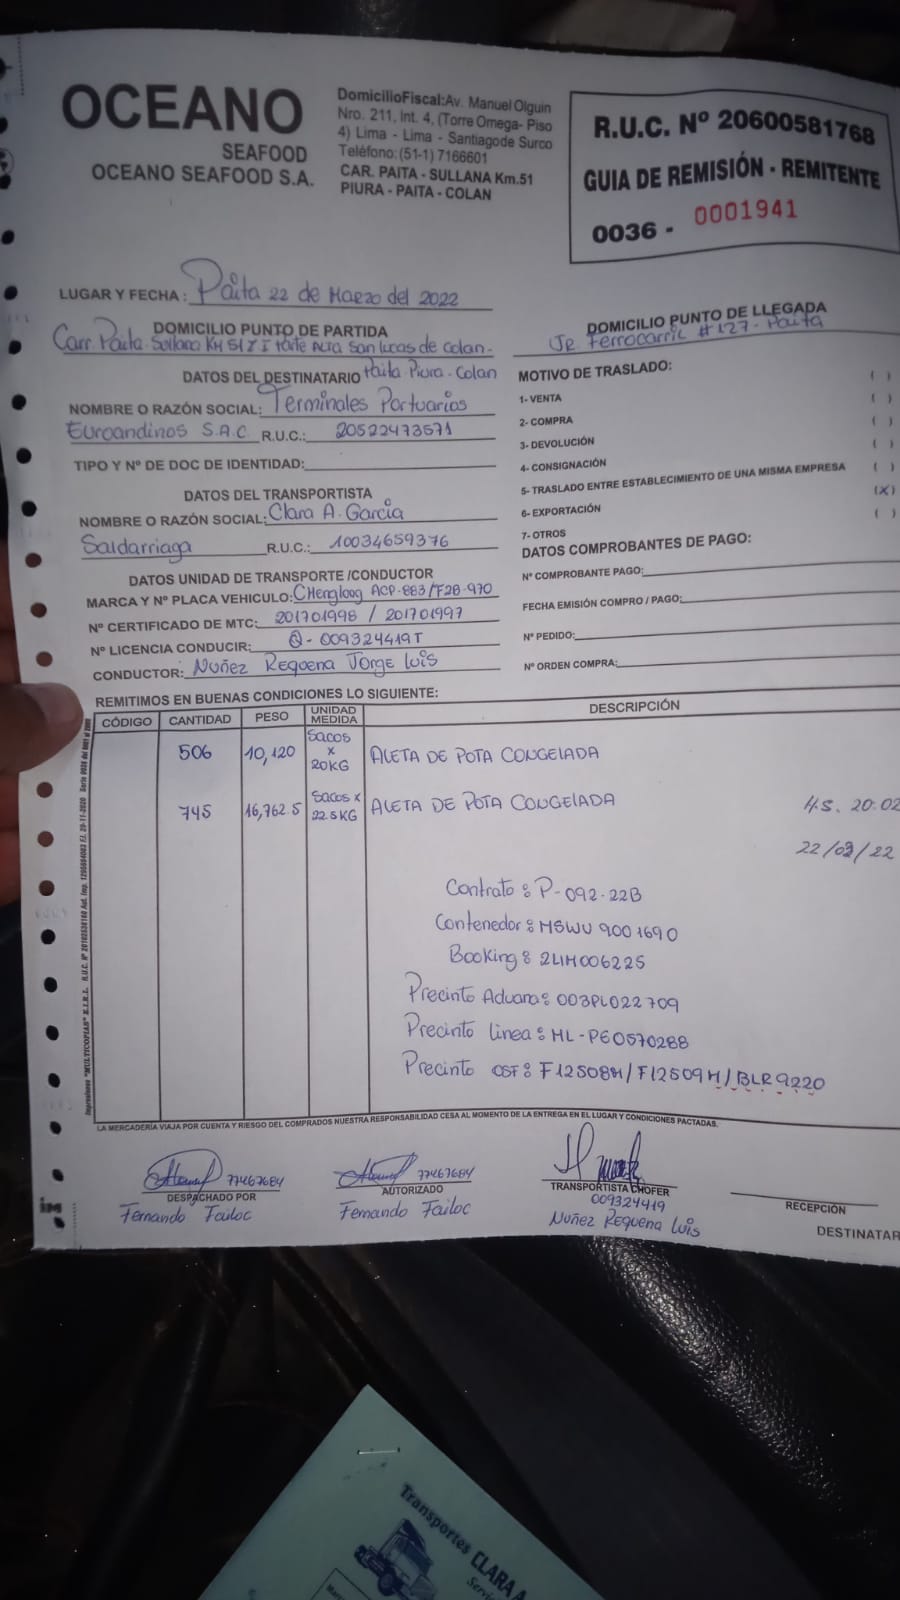 OCEANO
SEAFOOD
OCEANO SEAFOOD S.A.
DomicilioFiscal:Av. Manuel Olguin
Nro. 211, Int. 4, (Torre Omega- Piso
4) Lima - Lima - Santiagode Surco
Teléfono: (51-1) 7166601
CAR. PAITA - SULLANA Km.51
PIURA - PAITA - COLAN
R.U.C. Nº 20600581768
GUIA DE REMISIÓN - REMITENTE
0036 - 0001941
LUGAR Y FECHA : Paita 22 de Marzo del 2022
DOMICILIO PUNTO DE PARTIDA
Carr. Paita - Sullana KM 51 Z I Parte Alta San Lucas de Colan -
Paita Piura - Colan
DOMICILIO PUNTO DE LLEGADA
Jr. Ferrocarril # 127 - Paita
DATOS DEL DESTINATARIO
NOMBRE O RAZÓN SOCIAL: Terminales Portuarios
Euroandinos S.A.C R.U.C.: 20522473571
TIPO Y Nº DE DOC DE IDENTIDAD:
DATOS DEL TRANSPORTISTA
NOMBRE O RAZÓN SOCIAL: Clara A. García
Saldarriaga R.U.C.: 10034659376
DATOS UNIDAD DE TRANSPORTE /CONDUCTOR
MARCA Y Nº PLACA VEHICULO: CHengloog ACP-883/F2B-970
Nº CERTIFICADO DE MTC: 201701998 / 201701997
Nº LICENCIA CONDUCIR: Q-009324419T
CONDUCTOR: Nuñez Requena Jorge Luis
MOTIVO DE TRASLADO:
1- VENTA ( )
2- COMPRA ( )
3- DEVOLUCIÓN ( )
4- CONSIGNACIÓN ( )
5- TRASLADO ENTRE ESTABLECIMIENTO DE UNA MISMA EMPRESA ( )
6- EXPORTACIÓN (X)
7- OTROS ( )
DATOS COMPROBANTES DE PAGO:
Nº COMPROBANTE PAGO:
FECHA EMISIÓN COMPRO / PAGO:
Nº PEDIDO:
Nº ORDEN COMPRA:
REMITIMOS EN BUENAS CONDICIONES LO SIGUIENTE:
CÓDIGO CANTIDAD PESO UNIDAD MEDIDA DESCRIPCIÓN
506 10,120 Sacos x 20KG ALETA DE POTA CONGELADA
745 16,762.5 Sacos x 22.5KG ALETA DE POTA CONGELADA
H.S. 20:02
22/03/22
Contrato : P-092-22B
Contenedor : MSWU 9001690
Booking : 2LIM006225
Precinto Aduana : 003PL022709
Precinto linea : ML-PE0570288
Precinto OSF : F12508M / F12509M / BLR9220
LA MERCADERÍA VIAJA POR CUENTA Y RIESGO DEL COMPRADOS NUESTRA RESPONSABILIDAD CESA AL MOMENTO DE LA ENTREGA EN EL LUGAR Y CONDICIONES PACTADAS.
77467684
DESPACHADO POR
Fernando Failoc
77467684
AUTORIZADO
Fernando Failoc
TRANSPORTISTA CHOFER
009324419
Nuñez Requena Luis
RECEPCIÓN
DESTINATAR
Transportes CLARA A